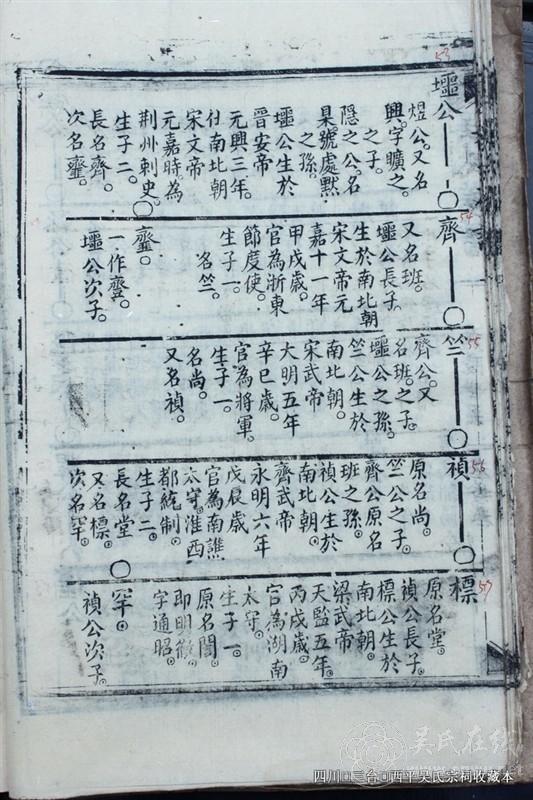 53
壥公
煜公。又名
興。字曠之。
之子。
隱之公。名
杲號處默
之孫。
壥公生於
晉安帝
元興三年。
仕南北朝
宋文帝
元嘉時。為
荆州刺史。
生子二。
長名齊。
次名𪗋。
54
齊
又名班。
壥公長子。
生於南北朝
宋文帝元
嘉十一年
甲戌歲。
官為浙東
節度使。
生子一。
名竺。
一作𪗋。
壥公次子。
55
竺
齊公。又
名班。之子。
壥公之孫。
竺公生於
南北朝。
宋武帝
大明五年
辛巳歲。
官為將軍。
生子一。
名尚。
又名禎。
56
禎
原名尚。
竺公之子。
齊公原名
班之孫。
禎公生於
南北朝。
齊武帝
永明六年
戊辰歲
官為南譙
太守。淮西
都統制。
生子二。
長名堂
又名標。
次名罕。
57
標
原名堂。
禎公長子。
標公生於
南北朝。
梁武帝
天監五年。
丙戌歲。
官為湖南
太守。
生子一。
原名闇。
即明徹。
字通昭。
罕。
禎公次子。
吴氏在线
四川□三台□西平吴氏宗祠收藏本